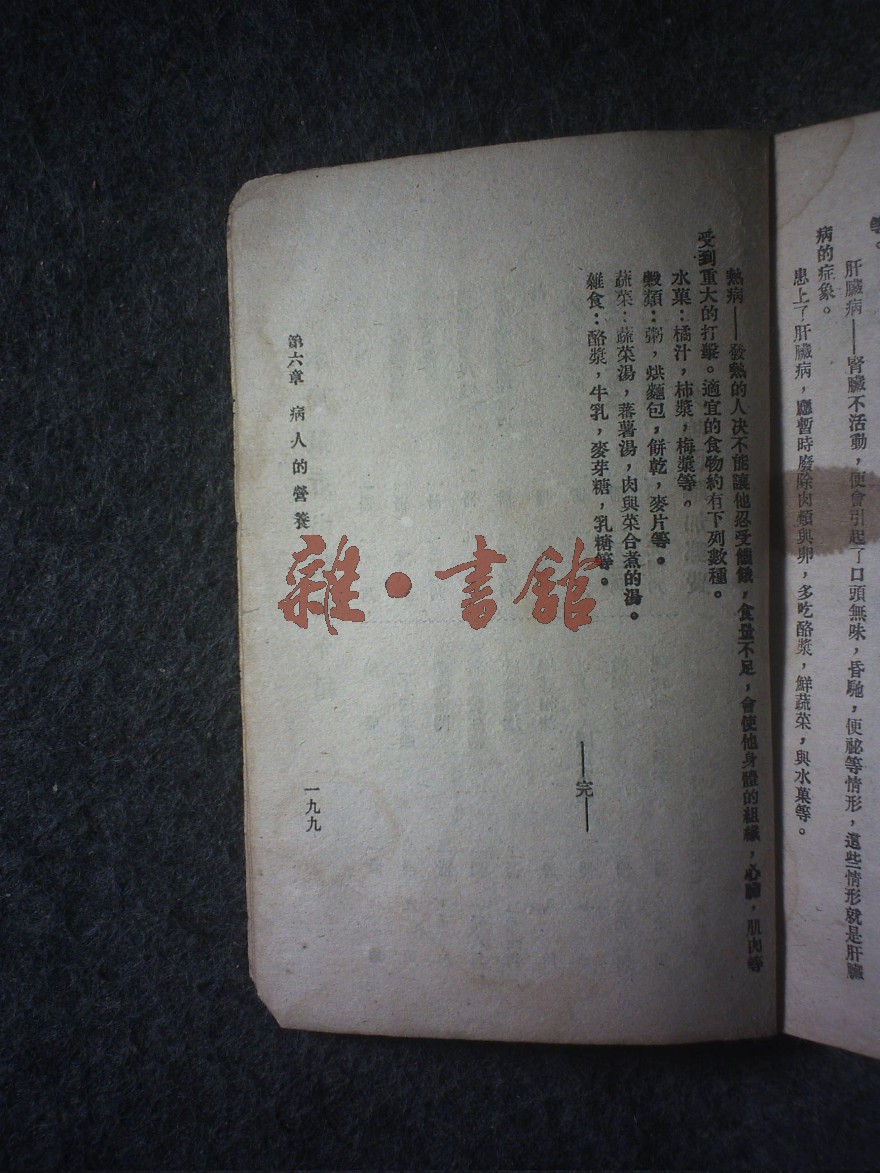 等。
肝臟病——腎臟不活動，便會引起了口頭無味，昏馳，便祕等情形，這些情形就是肝臟
病的症象。
患上了肝臟病，應暫時廢除肉類與卵，多吃酪漿，鮮蔬菜，與水菓等。
熱病——發熱的人決不能讓他忍受饑餓，食量不足，會使他身體的組織，心臟，肌肉等
受到重大的打擊。適宜的食物約有下列數種。
水菓：橘汁，柿漿，梅漿等。
穀類：粥，烘麵包，餅乾，麥片等。
蔬菜：蔬菜湯，蕃薯湯，肉與菜合煮的湯。
雜食：酪漿，牛乳，麥芽糖，乳糖等。
——完——
第六章 病人的營養
一九九
雜·書館